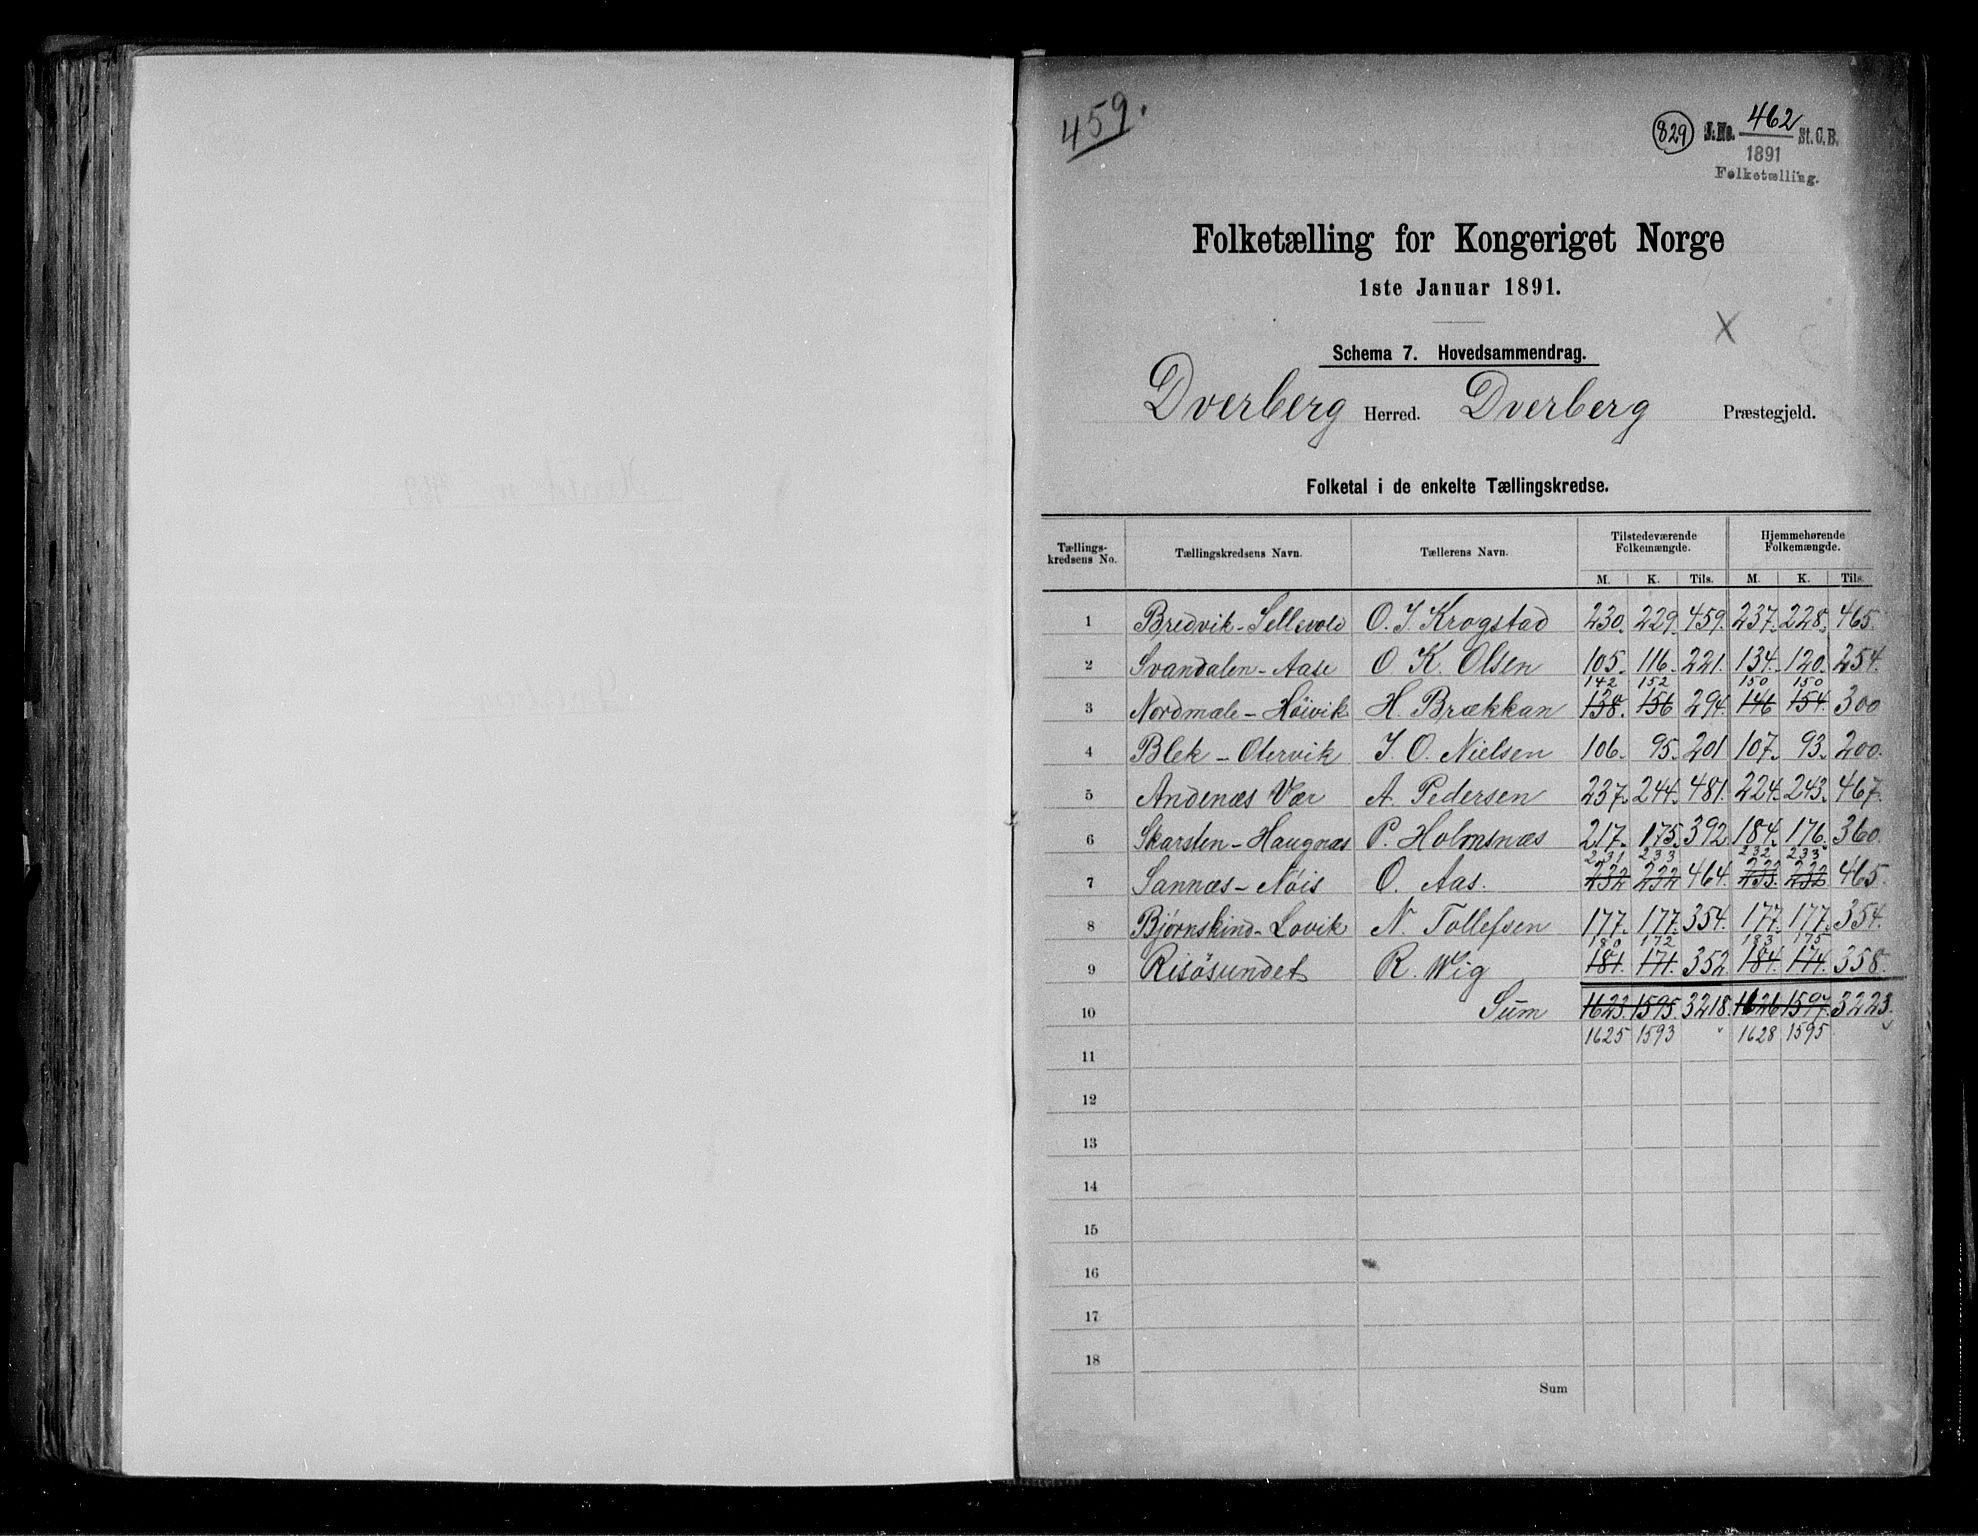 459.
829 J.No. 462 St.C.B.
1891
Folketælling.
Folketælling for Kongeriget Norge
1ste Januar 1891.
X
Schema 7. Hovedsammendrag.
Dverberg Herred. Dverberg Præstegjeld.
Folketal i de enkelte Tællingskredse.
Tællings-kredsens No. Tællingskredsens Navn. Tællerens Navn. Tilstedeværende Folkemængde. Hjemmehørende Folkemængde.
M. K. Tils. M. K. Tils.
1 Bredvik-Sellevold O. J. Krogstad 230. 229. 459. 237. 228. 465.
2 Svandalen-Aase O K. Olsen 105. 116. 221. 134. 120. 254.
142 152 150 150
3 Nordmæle-Höivik H. Brækkan 138. 156 294. 146 154. 300
4 Blek-Otervik J. O. Nielsen 106. 95. 201 107. 93. 200.
5 Andenæs Vær A. Pedersen 237. 244. 481. 224. 243. 467.
6 Skarsten-Haugnæs P. Holmsnæs 217. 175. 392. 184. 176. 360.
231 233 232 233
7 Sannæs-Nöis O. Aas. 232 232 464. 233. 232 465.
8 Bjørnskind-Lovik N. Tollefsen 177. 177. 354. 177. 177. 354.
180 172 183 175
9 Risösundet R. Wig 181. 171. 352 184. 174. 358.
10 Sum 1623. 1595. 3218. 1626 1597. 3223.
1625 1593 1628 1595
11
12
13
14
15
16
17
18
Sum